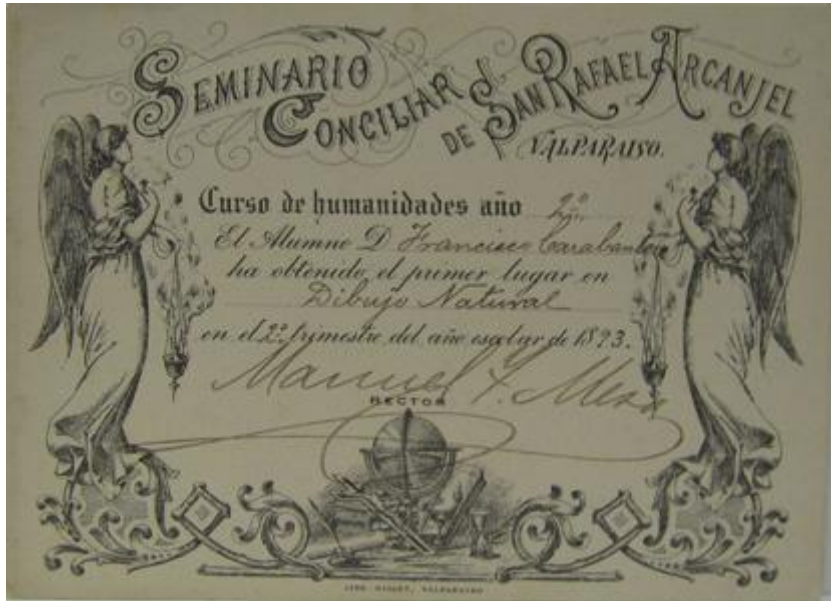 SEMINARIO
CONCILIAR
DE SAN RAFAEL ARCANJEL
VALPARAISO.
Curso de humanidades año 2º
El Alumno D Francisco Carabantes
ha obtenido el primer lugar en
Dibujo Natural
en el 2º trimestre del año escolar de 1893.
Manuel T. Mesa
RECTOR
VALPARAISO